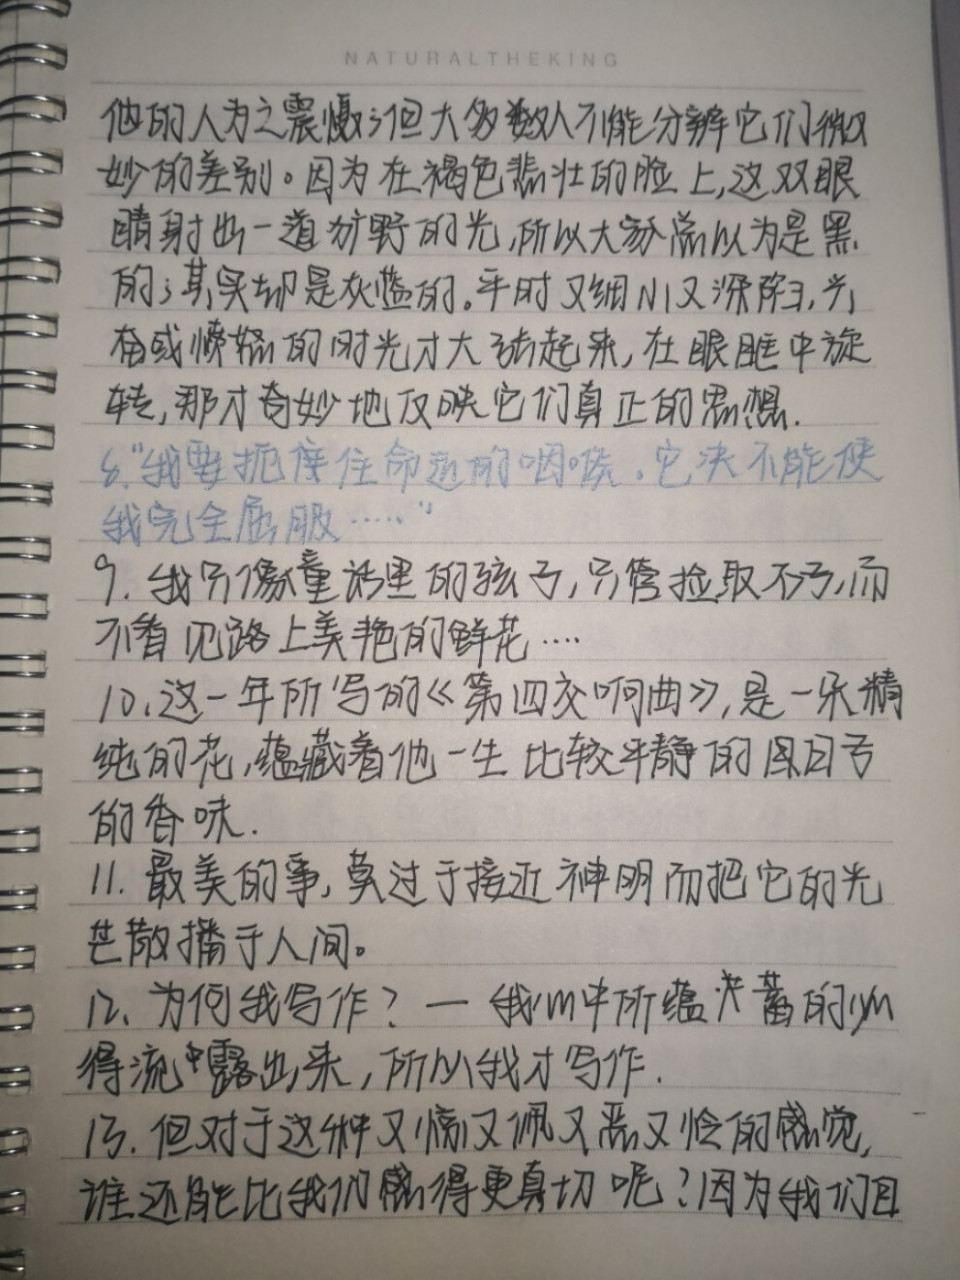 NATURALTHEKING
他的人为之震慑;但大多数人不能分辨它们微
妙的差别。因为在褐色悲壮的脸上,这双眼
睛射出一道犷野的光,所以大家总以为是黑
的;其实却是灰蓝的。平时又细小又深陷,兴
奋或愤怒的时光才大张起来,在眼眶中旋
转,那才奇妙地反映它们真正的思想.
8."我要扼住命运的咽喉.它决不能使
我完全屈服……"
9.我只像童话里的孩子,只管捡取石子,而
不看见路上美艳的鲜花….
10.这一年所写的《第四交响曲》,是一朵精
纯的花,蕴藏着他一生比较平静的日子
的香味.
11.最美的事,莫过于接近神明而把它的光
芒散播于人间。
12.为何我写作?一我心中所蕴蓄的必
得流露出来,所以我才写作.
13.但对于这种又惊又佩又恶又怜的感觉,
谁还能比我们感得更真切呢?因为我们目